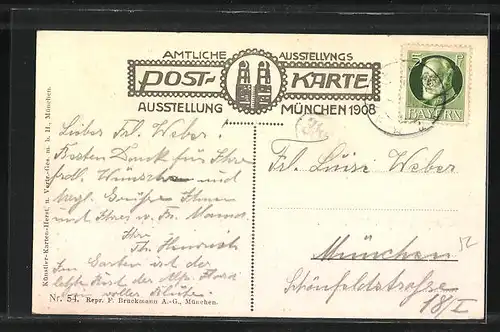 AMTLICHE AUSSTELLUNGS
POST-KARTE
AUSSTELLUNG MÜNCHEN 1908
5 P
BAYERN
Lieber Frl. Weber!
Besten Dank für Ihre
frdl. Wünsche und
herzl. Grüße Ihnen
und Ihrer v. Fr. Mama.
Ihr
Th. Heinrich
Im Garten ist der
letzte Rest der Alp. Flora
voller Blüte.
Frl. Luise Weber
München
Schönfeldstrasse
18/I
Künstler-Karten-Herst. u. Vertr.-Ges. m. b. H., München.
Nr. 54. Repr. F. Bruckmann A.-G., München.